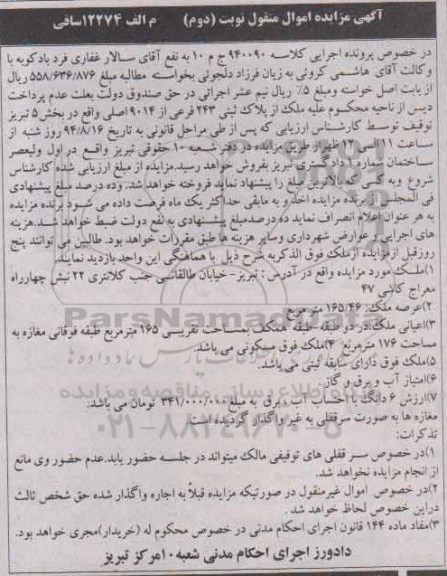 آگهی مزایده اموال منقول نوبت (دوم) م الف ۱۲۲۷۴ساقی
در خصوص پرونده اجرایی کلاسه ۹۴۰۰۹۰ ج م ۱۰ به نفع آقای سالار غفاری فرد بادکوبه با
وکالت آقای هاشمی کروئی به زیان فرزاد دلجوئی بخواسته مطالبه مبلغ ۵۵۸/۶۳۶/۸۷۶ ریال
از بابت اصل خواسته ومبلغ ۵٪ ریال نیم عشر اجرائی در حق صندوق دولت بعلت عدم پرداخت
دین از ناحیه محکوم علیه ملک از پلاک ثبتی ۲۴۳ فرعی از ۹۰۱۴ اصلی واقع در بخش ۵ تبریز
توقیف توسط کارشناس ارزیابی که پس از طی مراحل قانونی به تاریخ ۹۴/۸/۱۶ روز شنبه از
ساعت ۱۱ الی ۱۲ ظهر از طریق مزایده در دفتر شعبه ۱۰ حقوقی تبریز واقع در اول ولیعصر
ساختمان شماره ۱ دادگستری تبریز بفروش خواهد رسید.مزایده از مبلغ ارزیابی شده کارشناس
شروع وبه کسی که بالاترین مبلغ را پیشنهاد نماید فروخته خواهد شد. وده درصد مبلغ پیشنهادی
فی المجلس از برنده مزایده اخذ و به مابقی حداکثر یک ماه فرصت داده می شود برنده مزایده
به هر عنوان اعلام انصراف نماید ده درصدمبلغ پیشنهادی به نفع دولت ضبط خواهد شد.هزینه
های اجرایی و عوارض شهرداری وسایر هزینه ها طبق مقررات خواهد بود. طالبین می توانند پنج
روزقبل ازمزایده ازملک فوق الذکر به شرح ذیل با هماهنگی این واحد بازدید نمایند.
۱)ملک مورد مزایده واقع در آدرس : تبریز- خیابان طالقانی جنب کلانتری ۲۲ نبش چهارراه
معراج کاشی ۴۷
۲)عرصه ملک: ۱۶۵/۴۶ متر مربع
۳)اعیانی ملک:در دو طبقه- طبقه همکف بمساحت تقریبی ۱۶۵ مترمربع طبقه فوقانی مغازه به
مساحت ۱۷۶ مترمربع ۴)ملک فوق مسکونی می باشد.
۵)ملک فوق دارای سابقه ثبتی می باشد.
۶)امتیاز آب و برق و گاز
۷)ارزش ۶ دانگ با احتساب آب و برق به مبلغ ۳۴۱/۰۰۰/۰۰۰ تومان می باشد.
مغازه ها به صورت سرقفلی به غیر واگذار گردیده است.
تذکرات:
۱)در خصوص سر قفلی های توقیفی مالک میتواند در جلسه حضور یابد.عدم حضور وی مانع
از انجام مزایده نخواهد شد.
۲)در خصوص اموال غیرمنقول در صورتیکه مزایده قبلاً به اجاره واگذار شده حق شخص ثالث
دراین خصوص لحاظ خواهد شد .
۳)مفاد ماده ۱۴۴ قانون اجرای احکام مدنی در خصوص محکوم له (خریدار)مجری خواهد بود.
دادورز اجرای احکام مدنی شعبه ۱۰مرکز تبریز